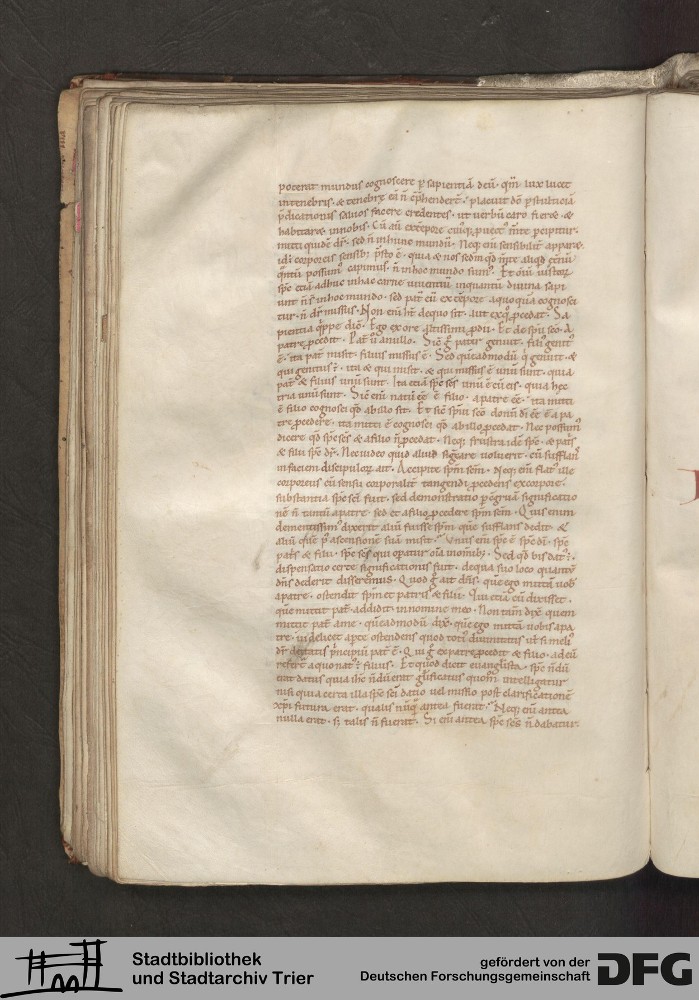 poterat mundus cognoscere p̄ sapientiā deū · qm̄ lux lucet
intenebris · & tenebrę eā n̄ cp̄hendert̄ · placuit dō p̄ stultitiā
p̄dicationis salvos facere credentes · ut uerbū caro fieret · &
habitaret innobis · Cū aū extēpore cuiq; puectu mte pcipitur ·
mitti quidē dr̄ · sed n̄ inhunc mundū · Neq; eni sensibilit̄ apparet ·
idē corporeis sensib; p̄sto ē · quia & nos sedm qd m̄te aliqd et̄nū
qntū possum capimus · n̄ inhoc mundo sum · Et om̄iū iustorū
sp̄c etiā adhuc inhac carne uiuentiū inquantū diuina sapi
unt n̄ s̄ inhoc mundo · sed pat̄ cū extēpore aquoquā cognosci
tur · n̄ dr̄ missus · Non eni ht̄ dequo sit · aut exq pcedat · Sa
pientia q̄ppe dic̄ · Ego exore altissimi pdii · Et de spū scō · A
patre pcedit · Pat̄ ū anullo · Sic̄ g̊ pater genuit · filius genit
ē · ita pat̄ misit · filius missus ē · Sed quēadmodū q genuit · &
qui genitus ē · ita & qui misit · & qui missus ē unū sunt · quia
pat̄ & filius unū sunt · Ita etiā sp̄c sc̄s unū ē cū eis · quia hęc
tria unū sunt · Sic̄ eni natū eē ē filio · apatre eē · ita mitti
ē filio cognosci qd ab illo sit · Et sic̄ sp̄ui scō donū dī eē ē a pa
tre pcedere · ita mitti ē cognosci qd ab illo pcedat · Nec possum
dicere qd sp̄c sc̄s & afilio n̄ pcedat · Neq; frustra idē sp̄c · & patris
& filii sp̄c dr̄ · Nec uideo quid aliud significare uoluerit · cū sufflans
infaciem discipulorū ait · Accipite sp̄m scm̄ · Neq; eni flatus ille
corporeus cū sensu corporalit̄ tangendi pcedens excorpore ·
substantia sp̄c sc̄i fuit · sed demonstratio p̄ cgruā significatio
nē n̄ tantū apatre · sed et afilio pcedere sp̄m scm̄ · Quis enim
dementissim̄ dixerit aliū fuisse sp̄m quē sufflans dedit · &
aliū quē p̄ ascensionē suā misit · Unus eni sp̄c ē sp̄c dī · sp̄c
patris & filii · sp̄c sc̄s qui opatur om̄ia inom̄ib; · Sed qd bis dat ē ·
dispensatio certe significationis fuit · dequa suo loco quantū
dn̄s dederit disseremus · Quod g̊ ait dn̄s · quē ego mittā uob
apatre · ostendit sp̄m et patris & filii · Qui etiā cū dixisset ·
quē mittit pat̄ · addidit innomine meo · Non tam̄ dix̄ quem
mittit pat̄ ame · quēadmodū dix̄ · quē ego mittā uobis apa
tre · uidelicet apte ostendens quod toti diuinitatis ut̄ si meli
dr̄ deitatis p̄ncipiū pat̄ ē · Qui g̊ expatre pcedit & filio · adeū
refert̄ aquo nat ē filius · Et quod dicit euanglista · sp̄c n̄dū
erat datus quia ihc n̄dū erat glificatus quom̄ intelligatur
nisi quia certa illa sp̄c sc̄i datio uel missio post clarificationē
xpī futura erat · qualis nūq antea fuerat · Neq; eni antea
nulla erat · s; talis n̄ fuerat · Si eni antea sp̄c sc̄s n̄ dabatur ·
Stadtbibliothek
und Stadtarchiv Trier
gefördert von der
Deutschen Forschungsgemeinschaft
DFG